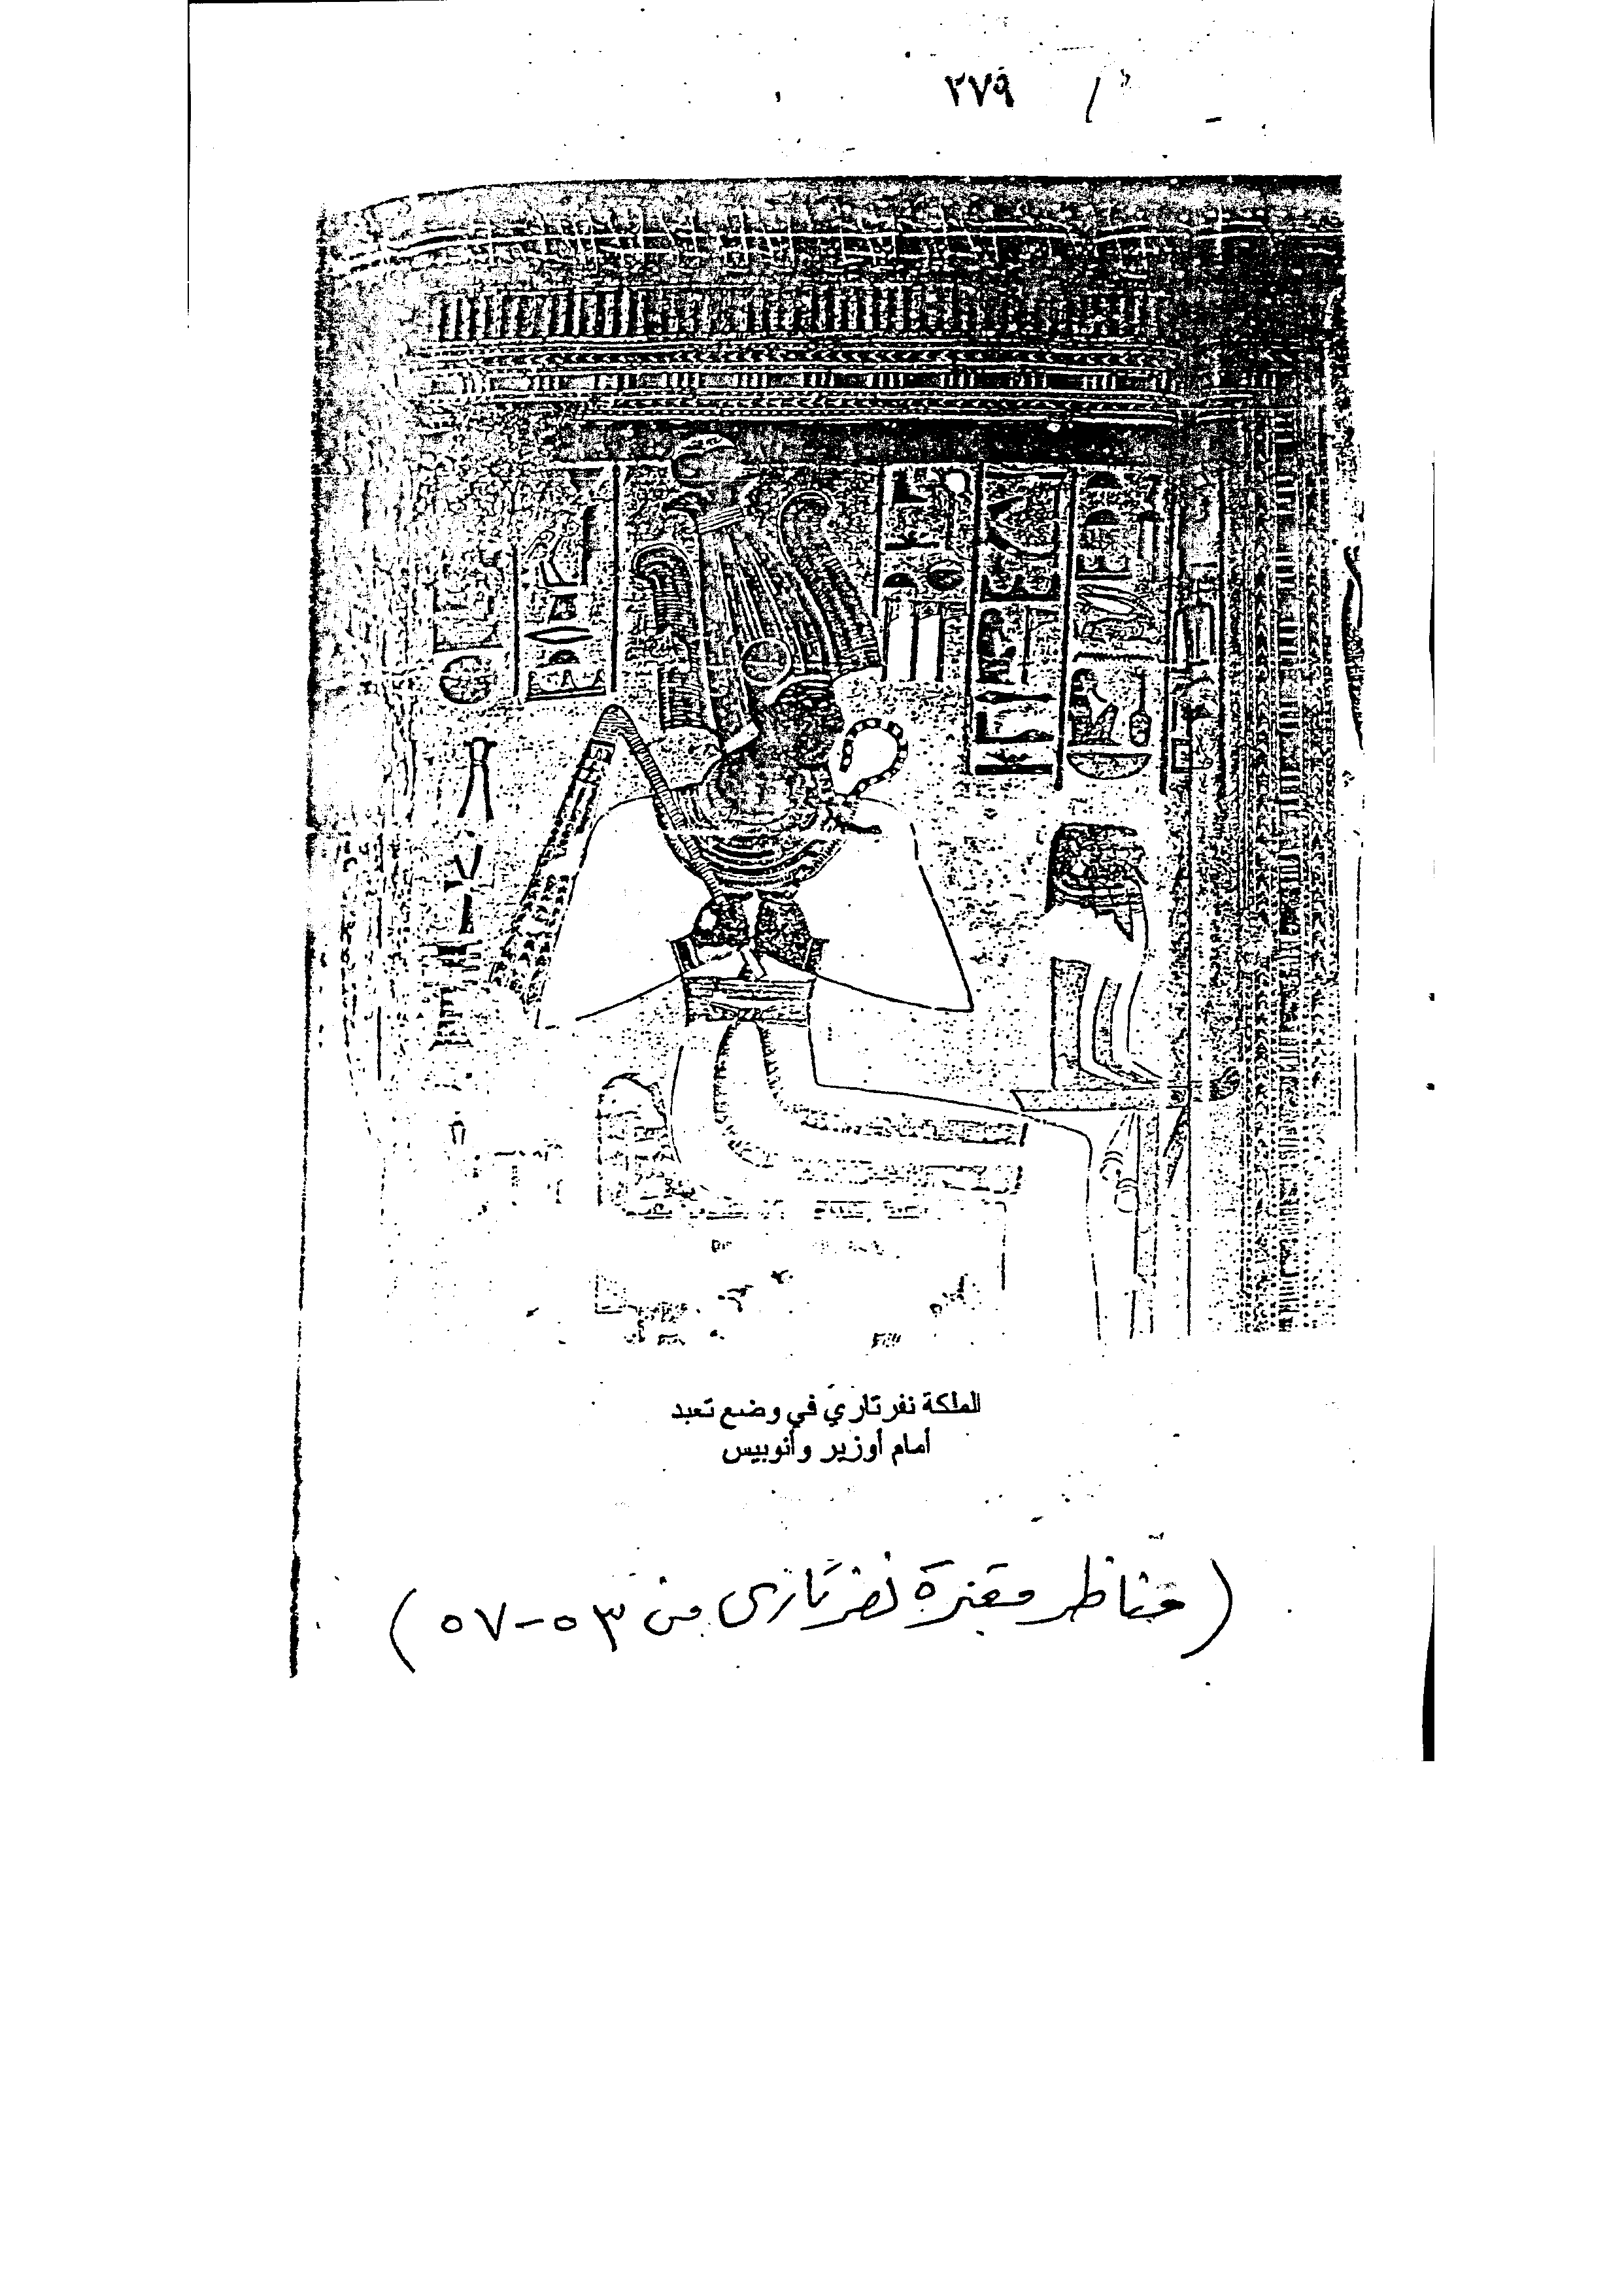 ٢٧٩
الملكة نفرتاري في وضع تعبد
أمام أوزير وأنوبيس
(مناظر مقبرة نفرتارى من ٥٣-٥٧)